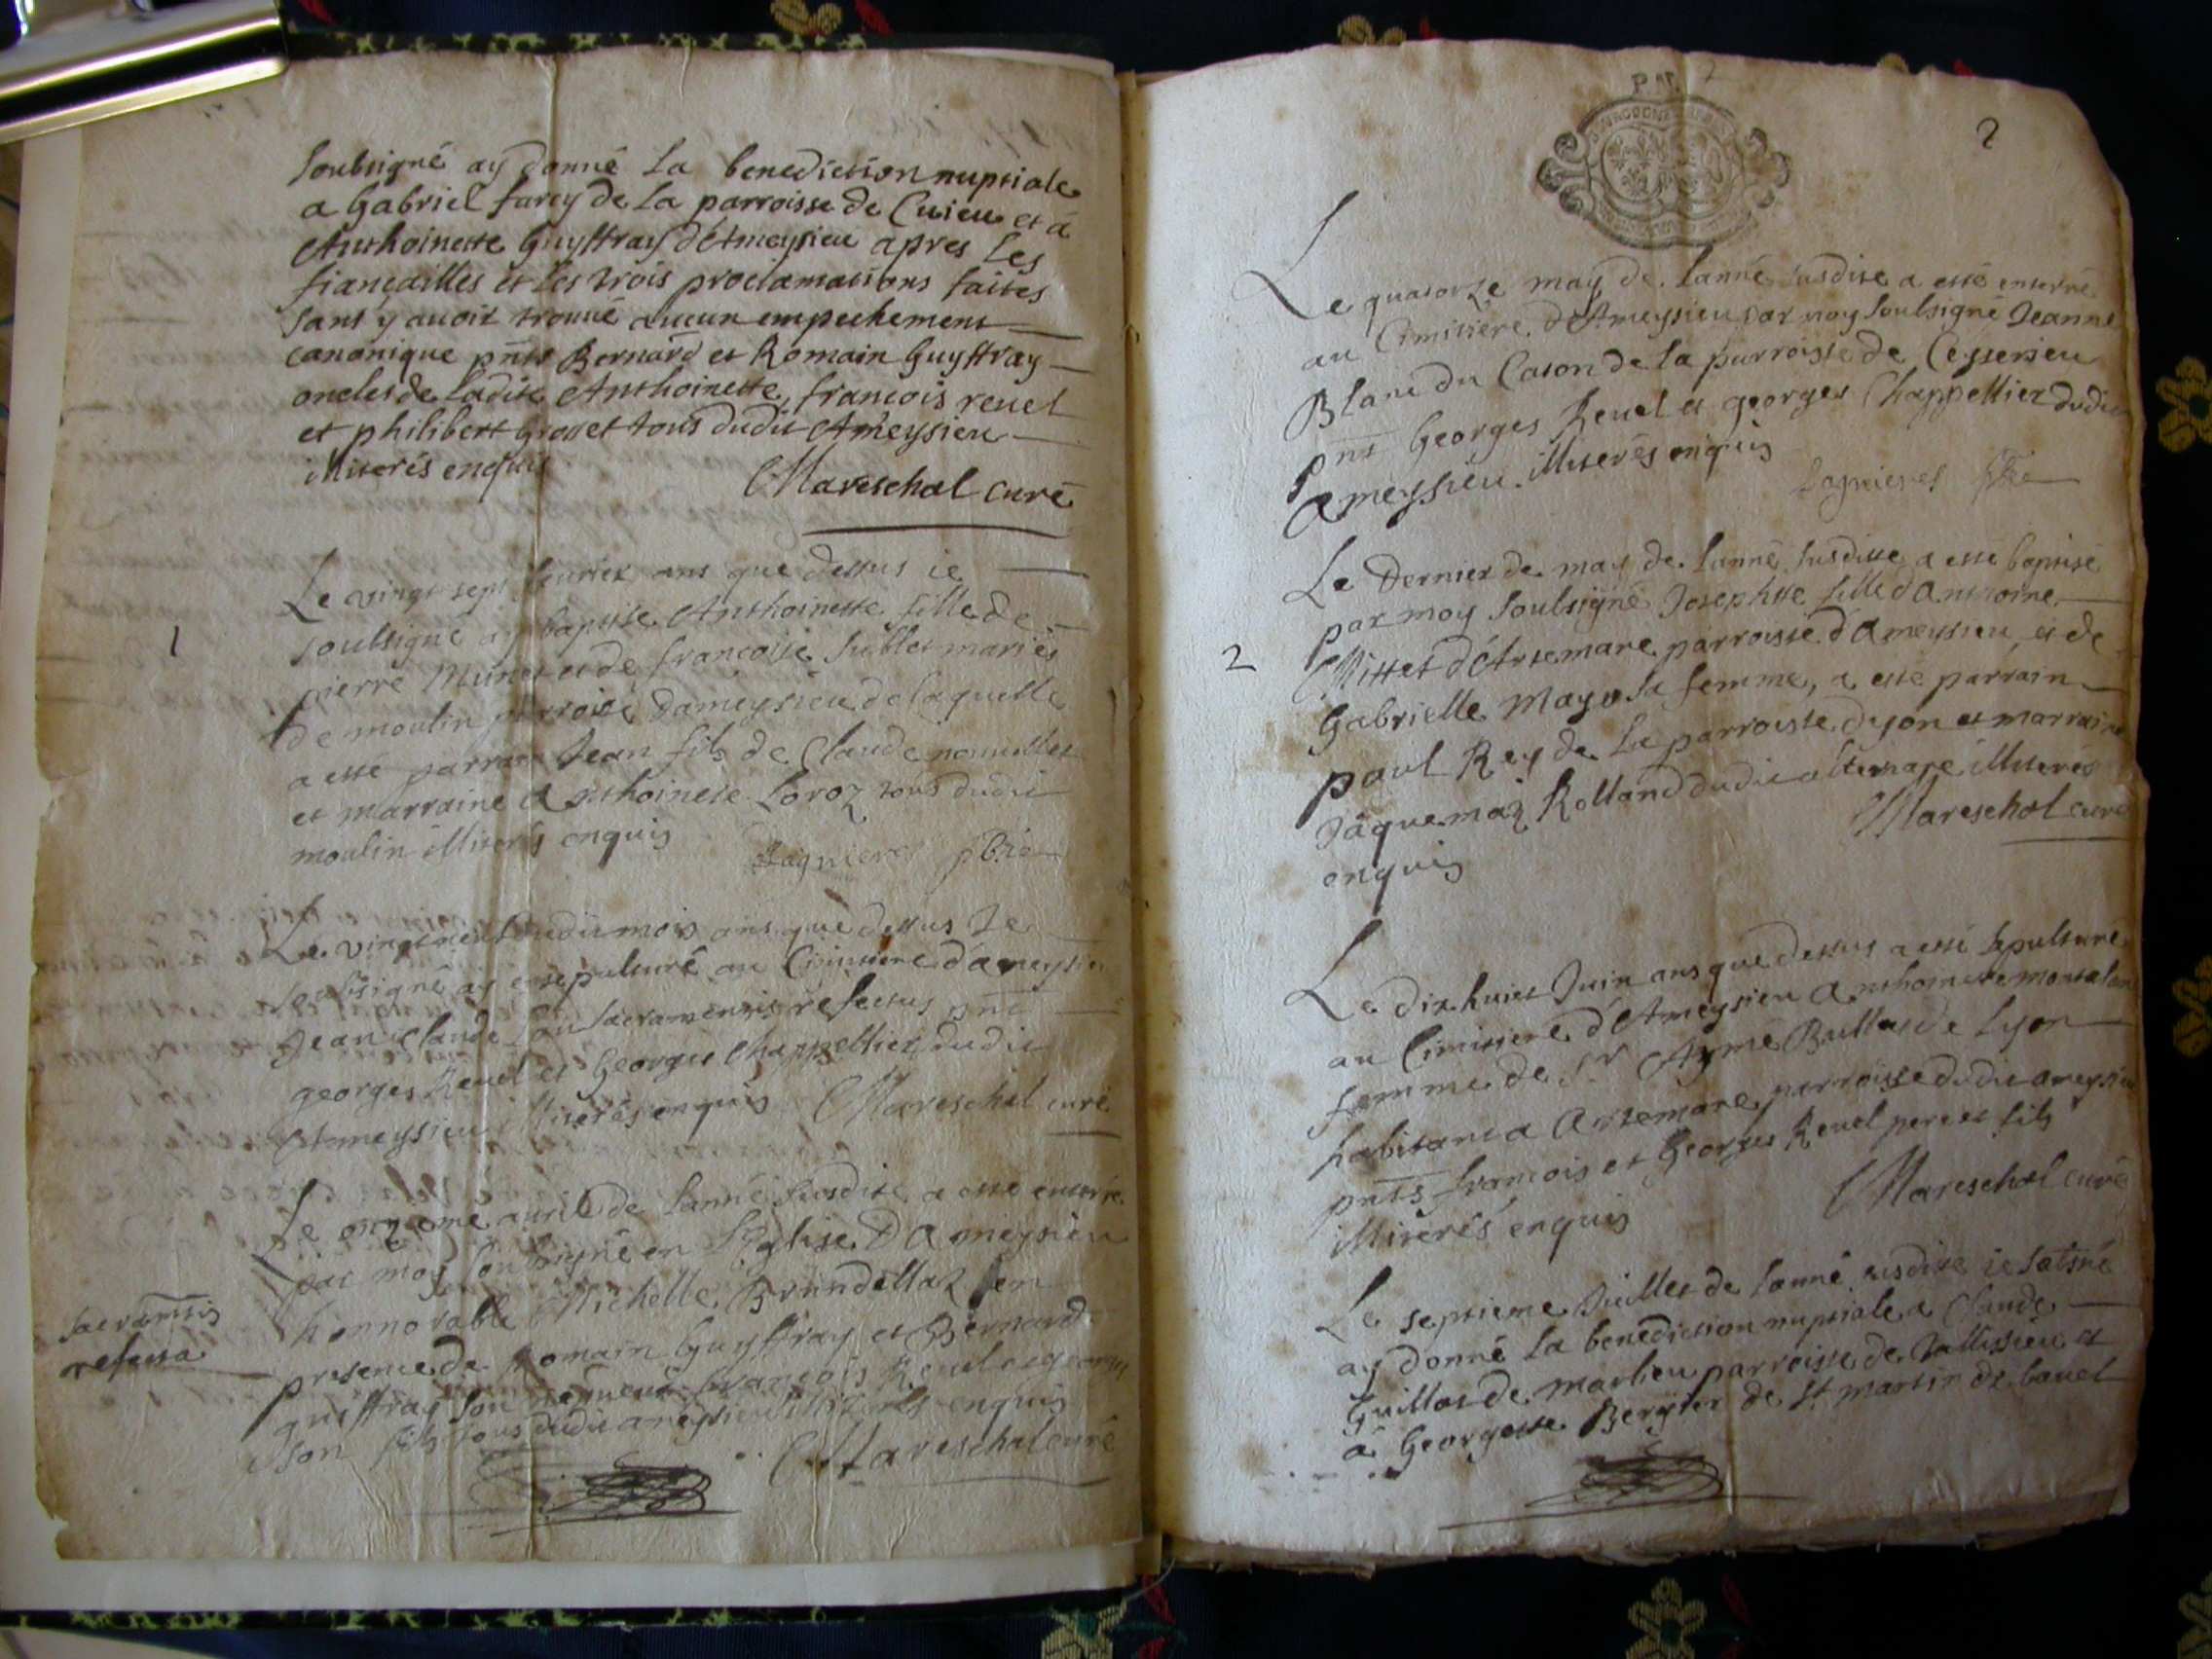 soubsigné ay donné la benediction nuptiale
a Gabriel farey de la parroisse de Cuieu et a
Anthoinette Guyffray d'Ameysieu apres les
fiançailles et les trois proclamations faites
sans y auoir trouué aucun empechement
canonique pnts Bernard et Romain Guyffray
oncles de ladite Anthoinette, francois reuel
et philibert Grosset tous dudit Ameysieu
illiterés enquis
Mareschal curé
Le vingt sept feurier ans que dessus ie
soubsigné ay baptisé Anthoinette fille de
pierre Munet et de francoise Sublet mariés
de moulin parroisse dameysieu de laquelle
a esté parrain Jean fils de Claude
et marraine Anthoinete Loroz tous dudit
moulin illiterés enquis
Lagnieres pbre
1
Le vingt neuf dudit mois ans que dessus Je
soubsigné ay ensepulturé au Cimitiere d'ameysieu
Jean Claude sacramentis refectus pnt
georges Reuel et Georges Chappellier dudit
Ameysieu illiterés enquis Mareschal curé
Le onzieme auril de lanné susdite a esté enterré
par moy soubsigné en l'Eglise D'Ameysieu
honnorable Michelle Brundellaz en
presence de Romain Guyffray et Bernard
guiffray son françois Reuel et george
son fils tous dudit ameysieu illiterés enquis
Mareschal curé
sacramtis
refecta
P NT
2
2
Le quatorze may de lanné susdite a esté enterré
au Cimitiere d'Ameysieu par moy soubsigné Jeanne
Blanc du Caton de la parroisse de Ceyserieu
pnt Georges Reuel et georges Chappellier dudit
Ameyssieu illiterés enquis
Lagnieres pbre
Le Dernier de may de lanné susditte a esté baptisé
par moy soubsigné Josephtte fille d'Antoine
Mittet d'Artemare parroisse d'Ameysieu et de
Gabrielle Mayo sa femme, a esté parrain
paul Rey de la parroisse dyon et marraine
Jaquemaz Rolland dudit altemare illiterés
enquis
Mareschal curé
2
Le dix huict Juin ans que dessus a esté sepulturé
au Cimitiere d'Ameysieu Anthoinette
femme de Sr Aymé Bullas de Lyon
habitant a Artemare parroisse dudit ameysieu
pnts francois et Georges Reuel pere et fils
illiterés enquis
Mareschal curé
Le septieme Juillet de lanné susdite ie sobsné
ay donné la benediction nuptiale a Claude
Guillot de marlieu parroisse de Tallissieu et
a Georgette Bergier de St martin de bauel